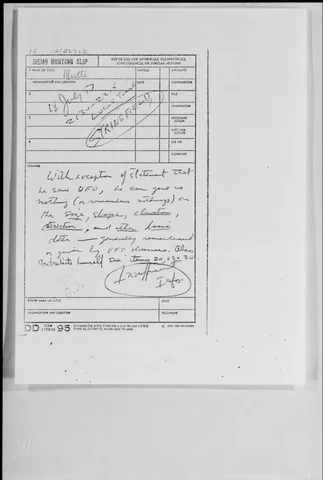 MEMO ROUTING SLIP
NEVER USE FOR APPROVALS, DISAPPROVALS, CONCURRENCES, OR SIMILAR ACTIONS
1 NAME OR TITLE
INITIALS
CIRCULATE
ORGANIZATION AND LOCATION
DATE
COORDINATION
2
FILE
INFORMATION
3
NECESSARY ACTION
NOTE AND RETURN
4
SEE ME
SIGNATURE
28 July
STRINGFIELD
REMARKS
With exception of statement that
he saw UFO, he can give us
nothing (or remembers nothing) on
the size, shape, elevation,
direction, and other basic
data — generally remembered
or given by UFO observers. Also
contradicts himself See items 20, 23 & 30
Insuff
Info
FROM NAME OR TITLE
DATE
ORGANIZATION AND LOCATION
TELEPHONE
DD FORM 95